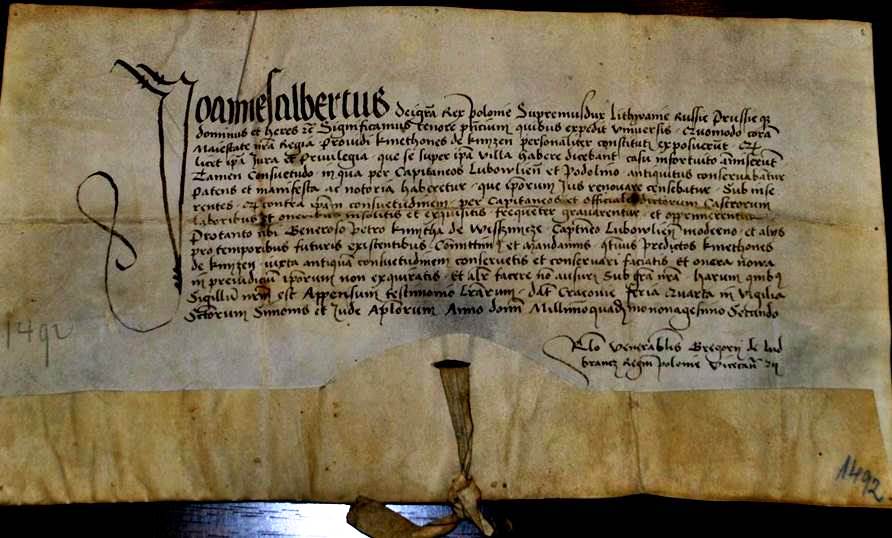 Joannes albertus dei gra Rex polonie Supremusdux Lithwanie Russie Prussie qz
dominus et heres rc Significamus tenore pntium quibus expedit vniuersis Quomodo cora
Maiestate nra Regia Prouidi kmethones de knyzen personaliter constituti exposuerut
licet ipa Jura Preuilegia que se super ipa villa habere dicebant casu infortuito amiserut
Tamen Consuetudo in qua per Capitaneos Lubowlien et Podolino antiquitus conseruabatur
Patens et manifesta ac notoria haberetur que iporum Jus renouare censebatur Sub infe
rentes contra ipam consuetudinem per Capitaneos et officiales Castrorum
laboribus et oneribus insolitis et exquisitis frequeter grauarentur et opprimerentur
Protanto tibi Generoso petro kmitha de capitneo Lubowlien moderno et alys
pro temporibus futuris existentibus Comittim et mandamus qtinus predictos kmethones
de knyzen iuxta antiqua consuetudinem conseruetis et conseruari faciatis et onera noua
in preiudiciu iporum non exquiratis Et alr facere no ausuri Sub gra nra harum quibz
Sigillu nrm est Appensum testimonio lrarum dat Cracouie feria Quarta in Vigilia
Sctorum Simonis et Jude Aplorum Anno domi Millimoquadrimononagesimo Secundo
Rlo Venerabilis Gregorij de lud
brancz Regni polonie Vicecan
1492
1492